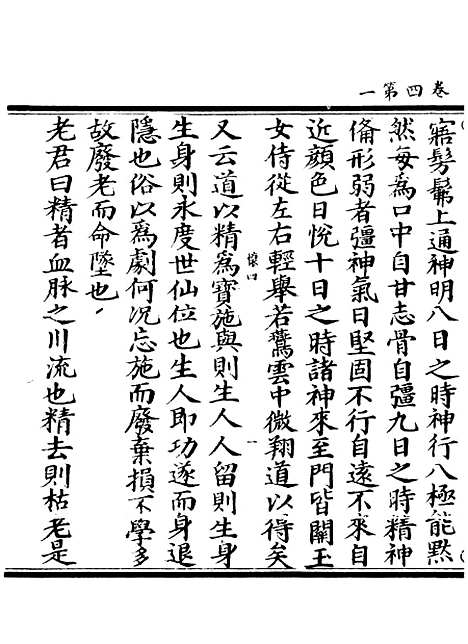 卷四第一
寤髣髴上通神明八日之時神行八極能黙
然每爲口中自甘志骨自彊九日之時精神
俻形弱者彊神氣日堅固不行自遠不来自
近顔色日悅十日之時諸神來至門皆關玉
女侍從左右輕舉若驚雲中微翔道以得矣
又云道以精爲寶施與則生人人留則生身
生身則永度世仙位也生人即功遂而身退
隱也俗以爲劇何况忘施而廢棄損不學多
故廢老而命墜也
老君曰精者血脉之川流也精去則枯老是